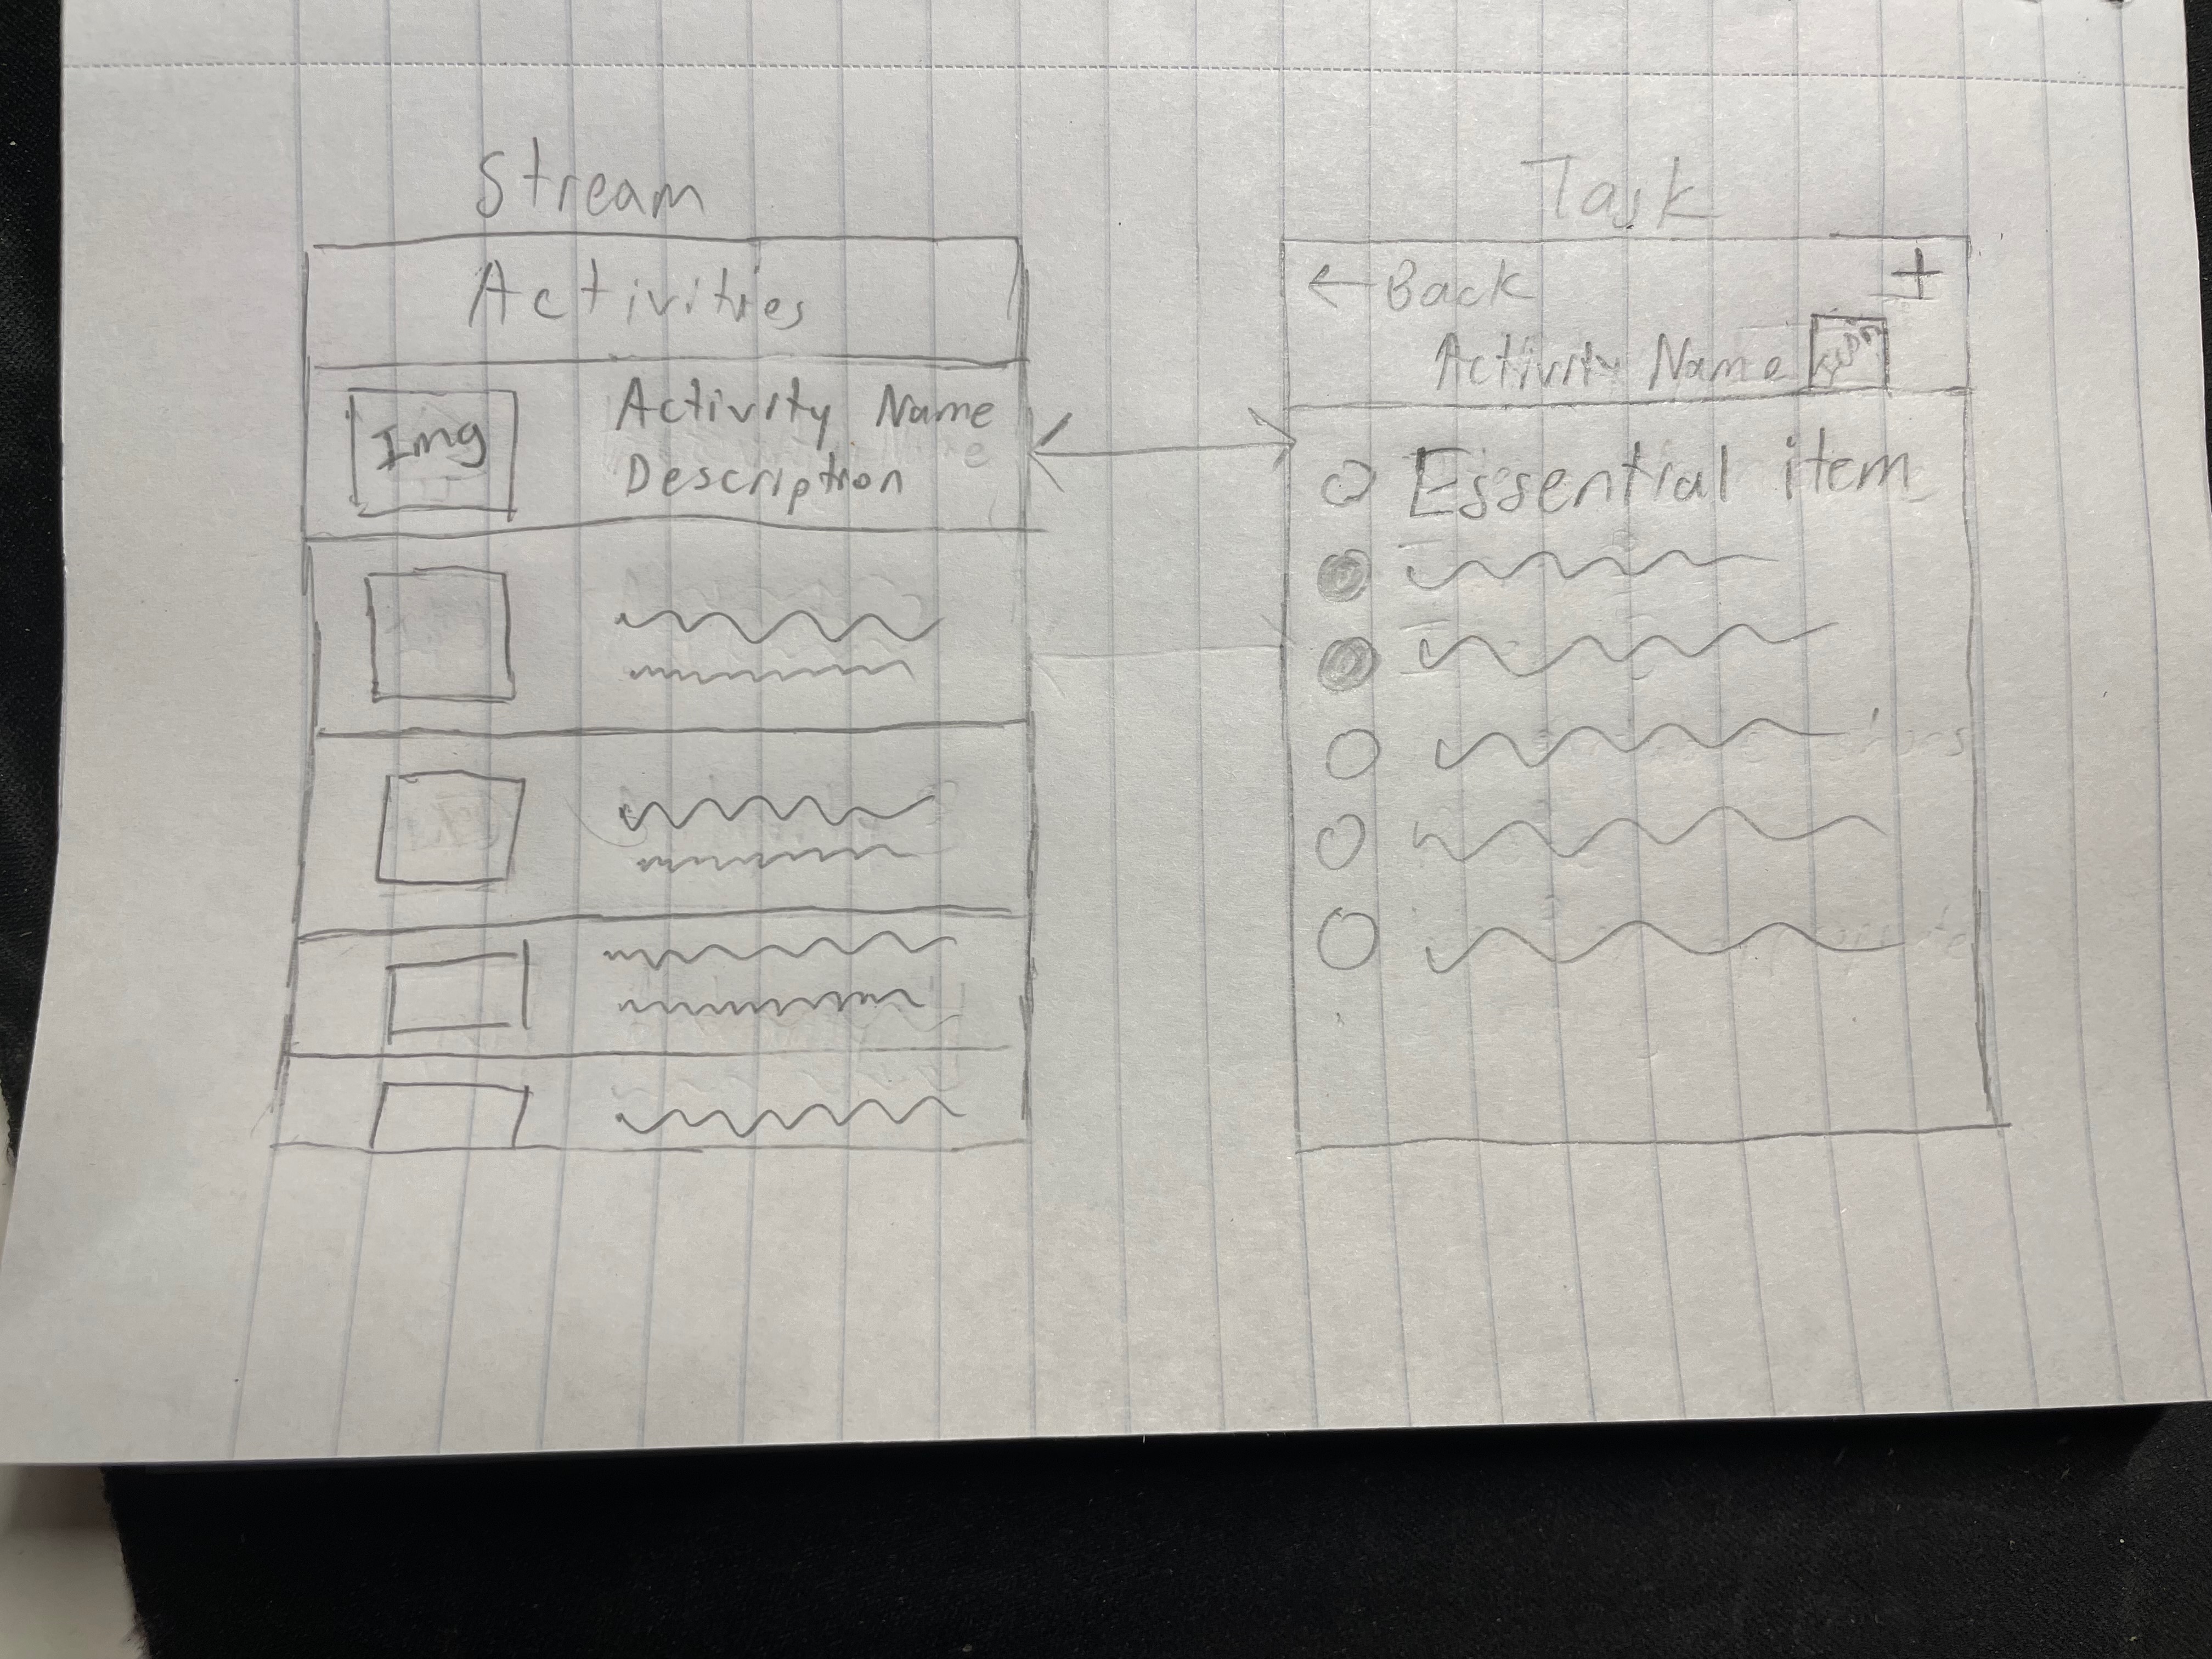 Stream
Activities
Img
Activity Name
Description
Task
← Back
+
Activity Name
Essential item